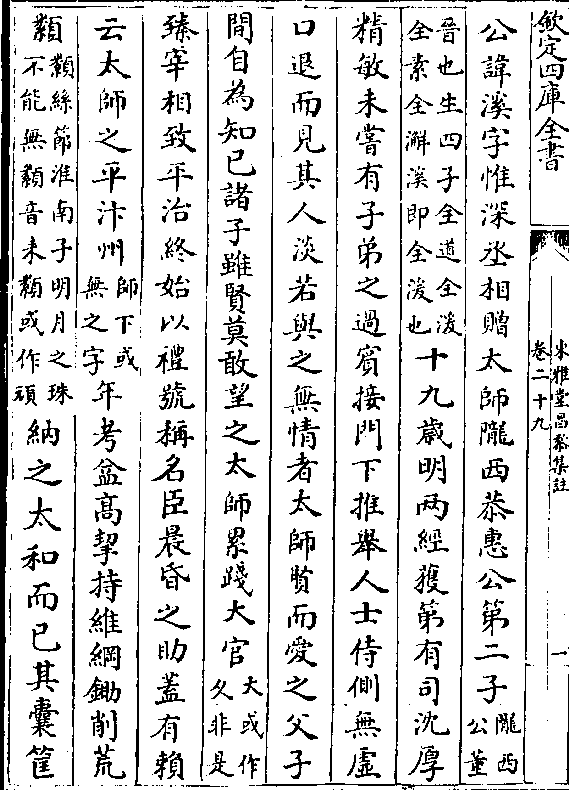 欽定四庫全書
東雅堂昌黎集註
卷二十九
一
公諱溪字惟深丞相贈太師隴西恭惠公第二子隴西
公董
晉也生四子全道全溪
全素全澥溪即全溪也十九歲明兩經獲第有司沈厚
精敏未嘗有子弟之過賓接門下推舉人士侍側無虛
口退而見其人淡若與之無情者太師賢而愛之父子
間自為知已諸子雖賢莫敢望之太師累踐大官大或作
久非是
臻宰相致平治終始以禮號稱名臣晨昏之助蓋有賴
云太師之平汴州師下或
無之字年考益髙挈持維綱鋤削荒
纇纇絲節淮南子明月之珠
不能無纇音耒纇或作頑納之太和而已其囊筐